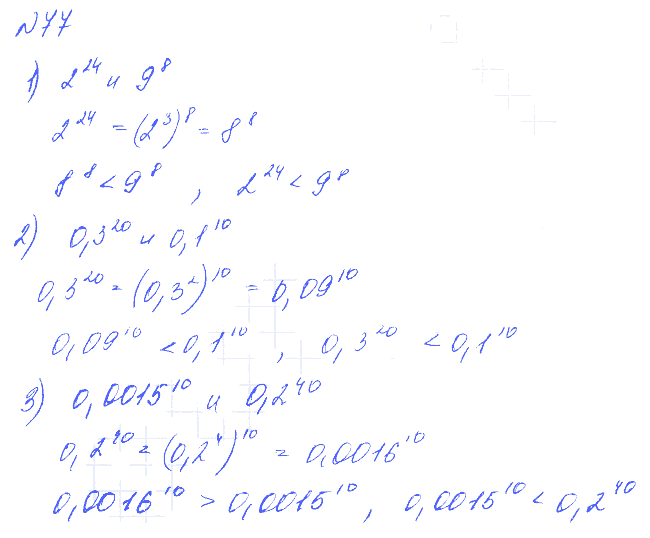 N77
1) 2²⁴ и 9⁸
2²⁴ = (2³)⁸ = 8⁸
8⁸ < 9⁸ , 2²⁴ < 9⁸
2) 0,3²⁰ и 0,1¹⁰
0,3²⁰ = (0,3²)¹⁰ = 0,09¹⁰
0,09¹⁰ < 0,1¹⁰ , 0,3²⁰ < 0,1¹⁰
3) 0,0015¹⁰ и 0,2⁴⁰
0,2⁴⁰ = (0,2⁴)¹⁰ = 0,0016¹⁰
0,0016¹⁰ > 0,0015¹⁰ , 0,0015¹⁰ < 0,2⁴⁰